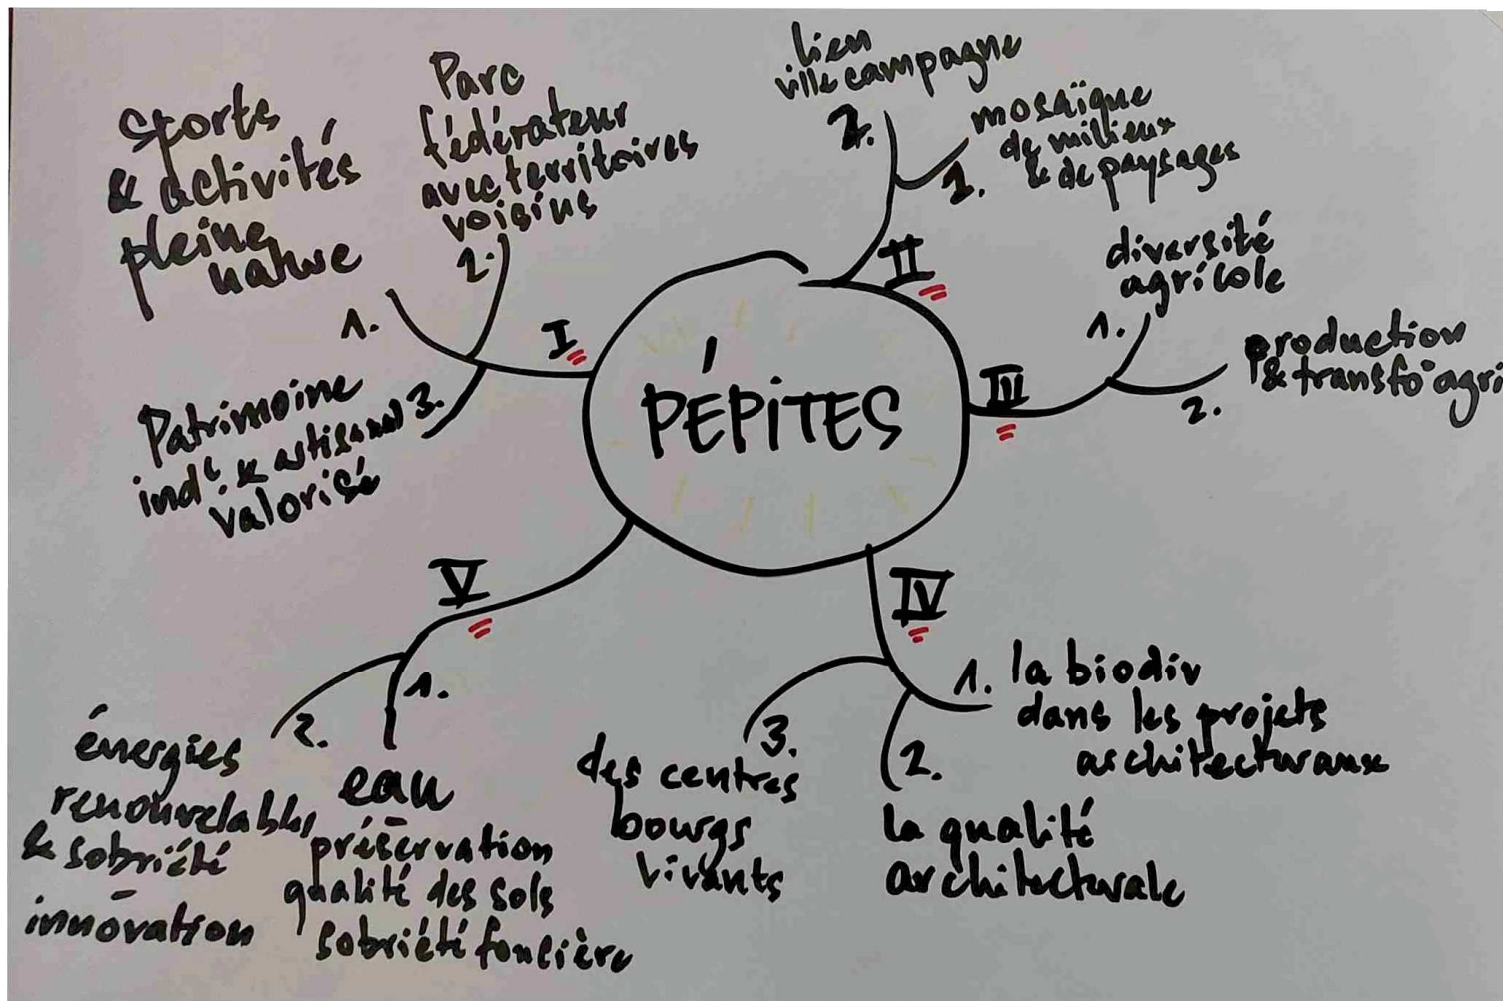 PÉPITES
I
1.
sports
& activités
pleine
nature
2.
Parc
fédérateur
avec territoires
voisins
3.
Patrimoine
indᵉˡ & artisanal
valorisé
II
1.
mosaïque
de milieux
& de paysages
2.
lien
ville campagne
III
1.
diversité
agricole
2.
production
& transfo° agri
IV
1.
la biodiv
dans les projets
architecturaux
2.
la qualité
architecturale
3.
des centres
bourgs
vivants
V
1.
eau
préservation
qualité des sols
sobriété foncière
2.
énergies
renouvelables
& sobriété
innovation